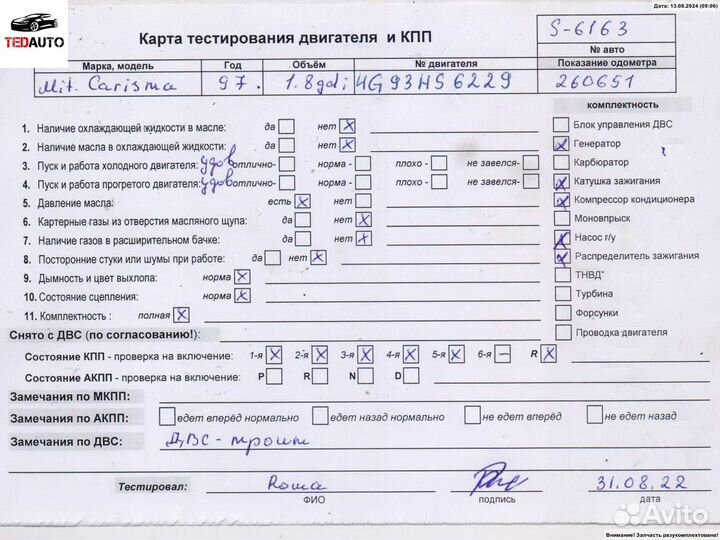 Дата: 13.08.2024 (09:06)
TEDAUTO
Карта тестирования двигателя и КПП
S-6163
№ авто
Марка, модель Год Объём № двигателя Показание одометра
Mit. Carisma 97. 1.8gdi 4G93HS6229 260651
комплектность
1. Наличие охлаждающей жидкости в масле: да нет X
Блок управления ДВС
2. Наличие масла в охлаждающей жидкости: да нет X
Генератор
3. Пуск и работа холодного двигателя: удов отлично- норма - плохо - не завелся-
Карбюратор
4. Пуск и работа прогретого двигателя: удов отлично- норма - плохо - не завелся-
Катушка зажигания
5. Давление масла: есть X нет
Компрессор кондиционера
6. Картерные газы из отверстия масляного щупа: да нет X
Моновпрыск
7. Наличие газов в расширительном бачке: да нет X
Насос г/у
8. Посторонние стуки или шумы при работе: да нет X
Распределитель зажигания
9. Дымность и цвет выхлопа: норма X
ТНВД"
10. Состояние сцепления: норма X
Турбина
11. Комплектность : полная X
Форсунки
Снято с ДВС (по согласованию!):
Проводка двигателя
Состояние КПП - проверка на включение: 1-я X 2-я X 3-я X 4-я X 5-я X 6-я — R X
Состояние АКПП - проверка на включение: P R N D
Замечания по МКПП:
Замечания по АКПП: едет вперёд нормально едет назад нормально не едет вперёд не едет назад
Замечания по ДВС: ДВС - троит
Тестировал: Roma 31.08.22
ФИО подпись дата
Avito
Внимание! Запчасть разукомплектована!